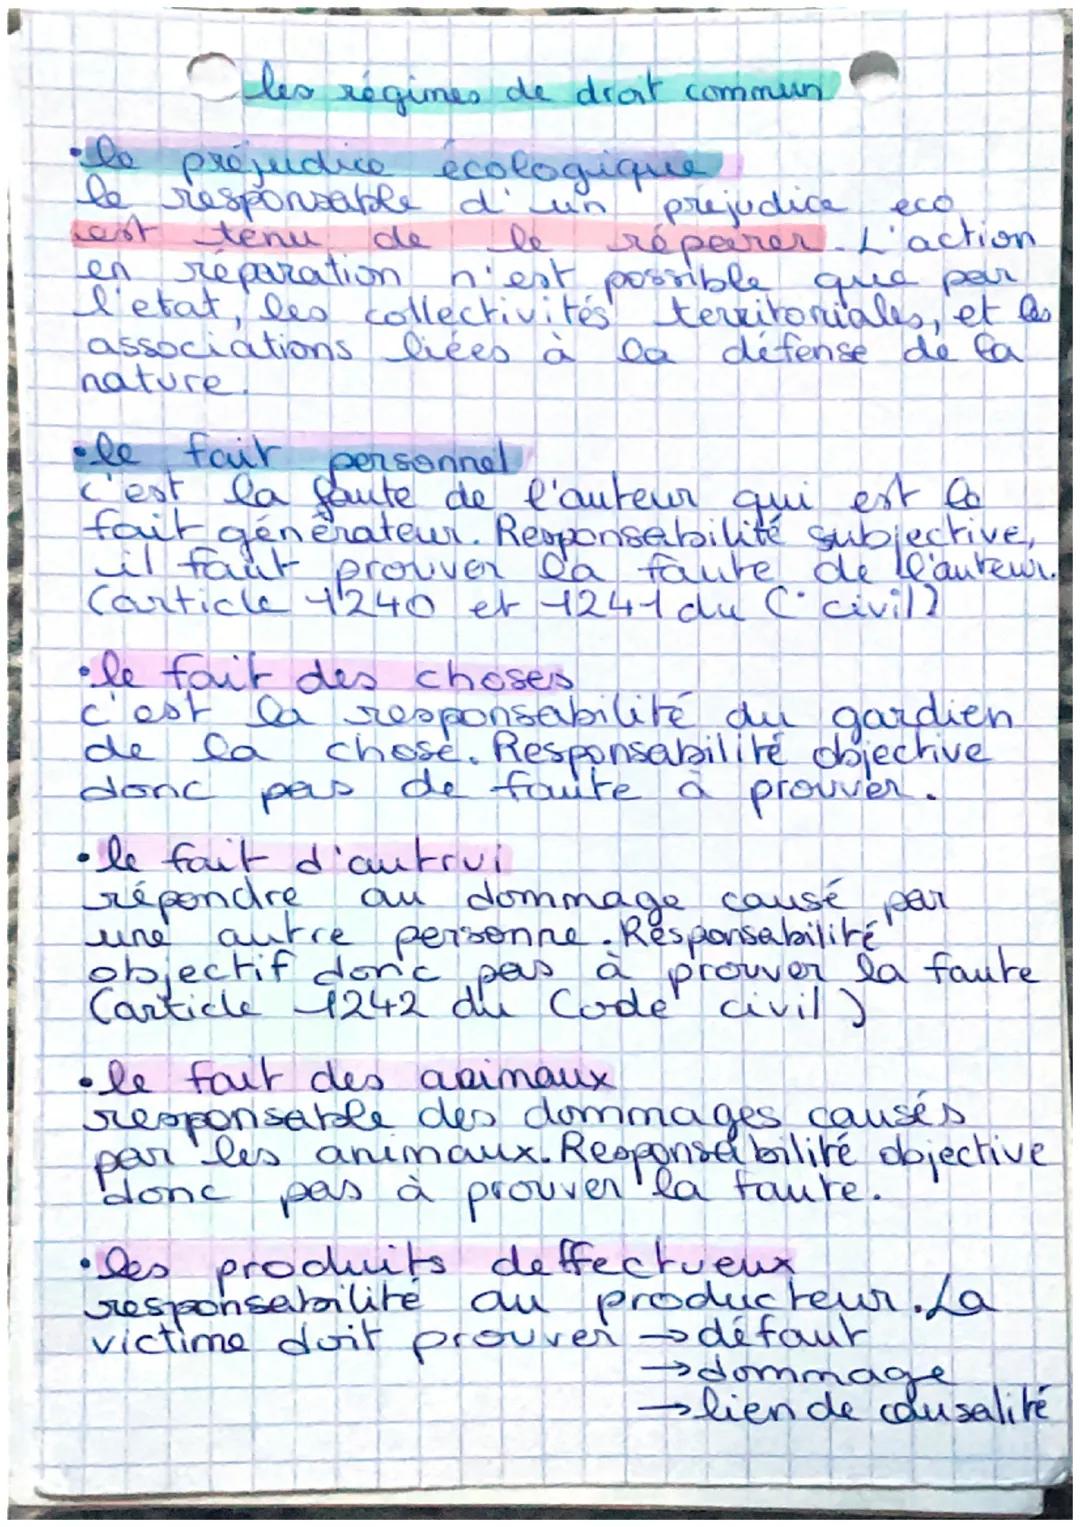 les régimes de droit commun
• le préjudice écologique
le responsable d'un préjudice eco
est tenu de le réparer. L'action
en réparation n'est possible que par
l'etat, les collectivités territoriales, et les
associations liées à la défense de la
nature.
• le fait personnel
c'est la faute de l'auteur qui est le
fait générateur. Responsabilité subjective,
il faut prouver la faute de l'auteur.
(article 1240 et 1241 du C. civil)
• le fait des choses
c'est la responsabilité du gardien
de la chose. Responsabilité objective
donc pas de faute à prouver.
• le fait d'autrui
répondre au dommage causé par
une autre personne. Responsabilité
objectif donc pas à prouver la faute
(article 1242 du Code civil)
• le fait des animaux
responsable des dommages causés
par les animaux. Responsabilité objective
donc pas à prouver la faute.
• les produits deffectueux
responsabilité au producteur. La
victime doit prouver → défaut
→ dommage
→ lien de causalité